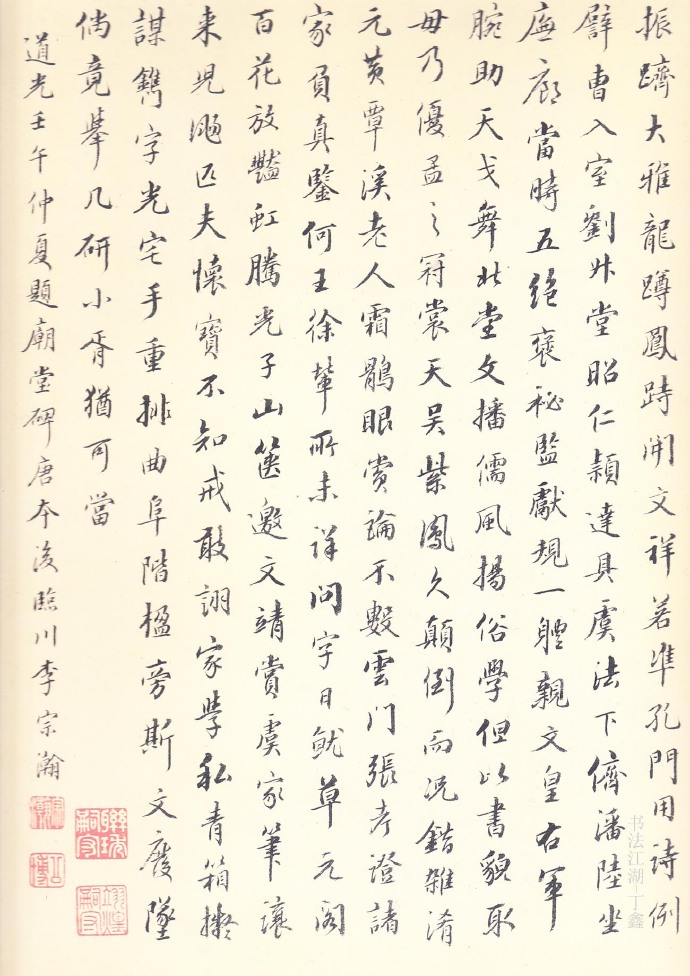 振躋大雅龍蹲鳳跱開文祥若準孔門用詩例
譬曹入室劉升堂昭仁穎達具虞法下儕潘陸坐
廡廊當時五絕褒祕監獻規一體親文皇右軍
腕助天戈舞北堂文播儒風揚俗學但以書貌取
毋乃優孟之冠裳天吳紫鳳久顛倒而況錯雜淆
元黃覃溪老人霜鶻眼賞論不數雲門張考證諸
家負真鑒何王徐輩所未詳問字日就草元閣
百花放豔虹騰光子山篋邀文靖賞虞家筆讓
來兒颺匹夫懷寶不知戒敢詡家學私青箱擬
謀鐫字光宅手重排曲阜階楹旁斯文廢墜
倘竟舉几研小胥猶可當
道光壬午仲夏題廟堂碑唐本後臨川李宗瀚
书法江湖丁鑫